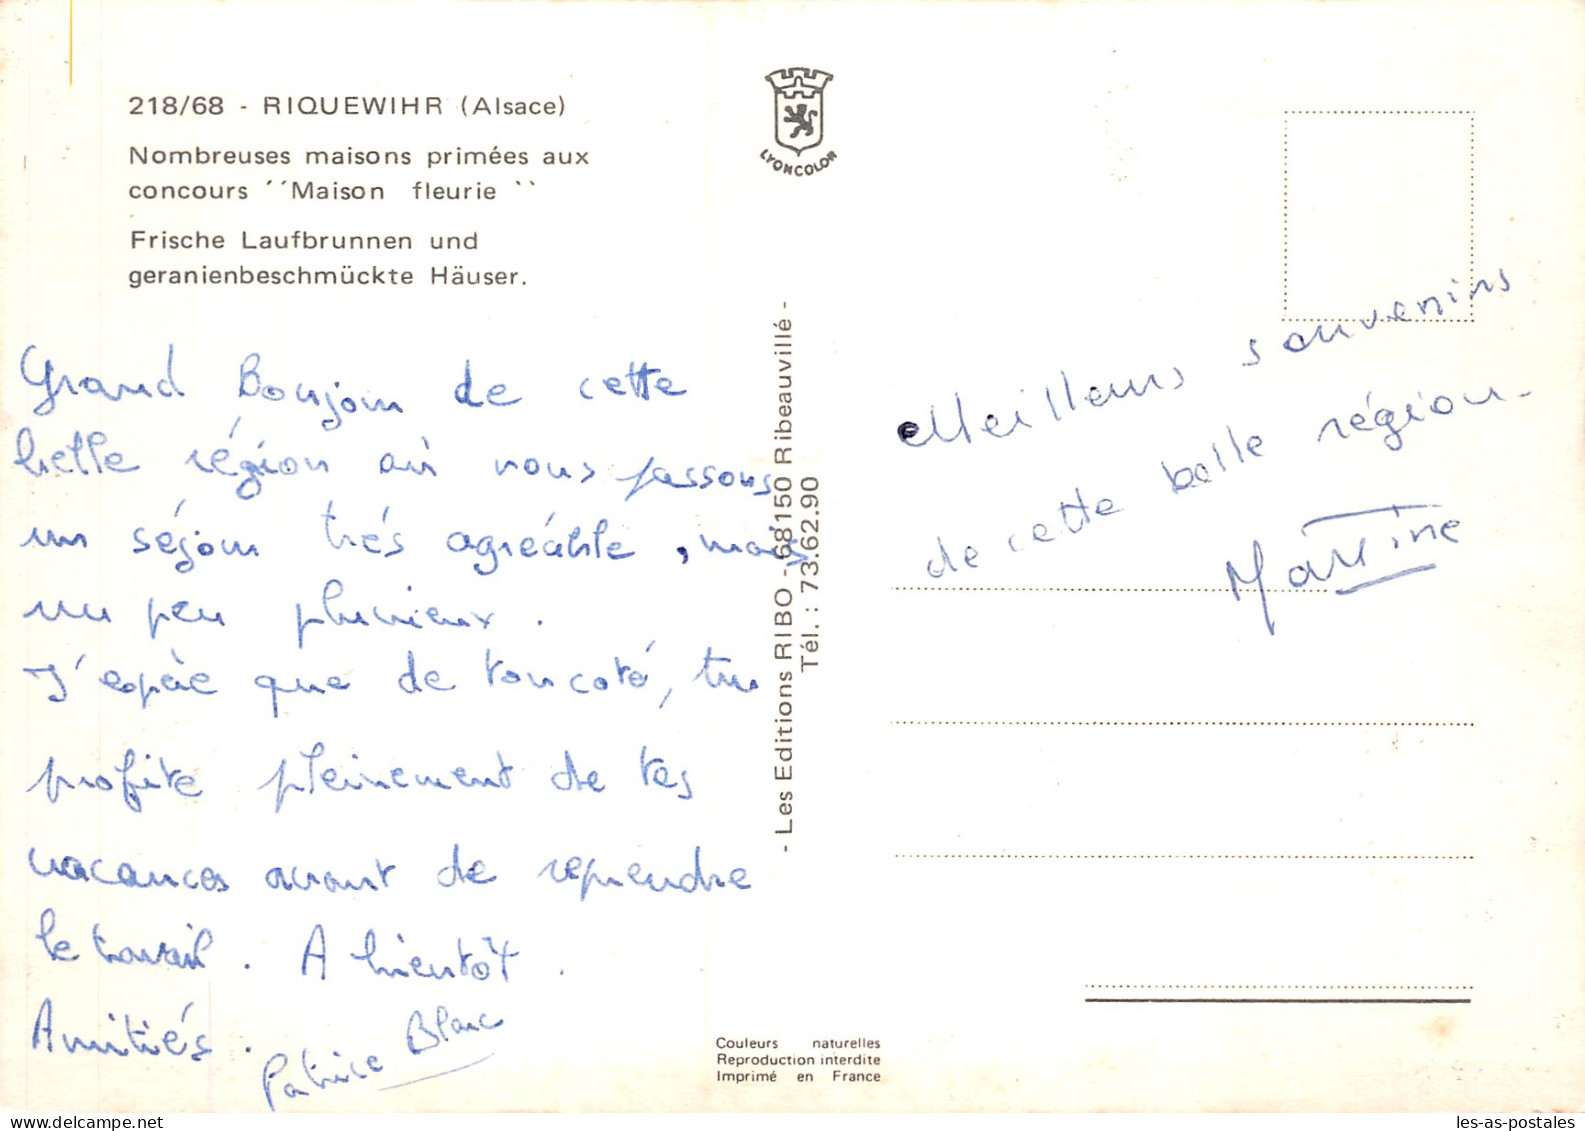 218/68 - RIQUEWIHR (Alsace)
Nombreuses maisons primées aux
concours ´´Maison fleurie ``
Frische Laufbrunnen und
geranienbeschmückte Häuser.
Grand Boujour de cette
belle région où nous passons
un séjour trés agréable, mais
un peu pluvieux.
J'espère que de toncoté, tu
profite pleinement de tes
vacances avant de reprendre
le travail. A bientôt.
Amitiés.
Patrice Blanc
LYONCOLOR
- Les Editions RIBO - 68150 Ribeauvillé -
Tél. : 73.62.90
Meilleurs souvenirs
de cette belle région.
Martine
Couleurs naturelles
Reproduction interdite
Imprimé en France
les-as-postales
delcampe.net